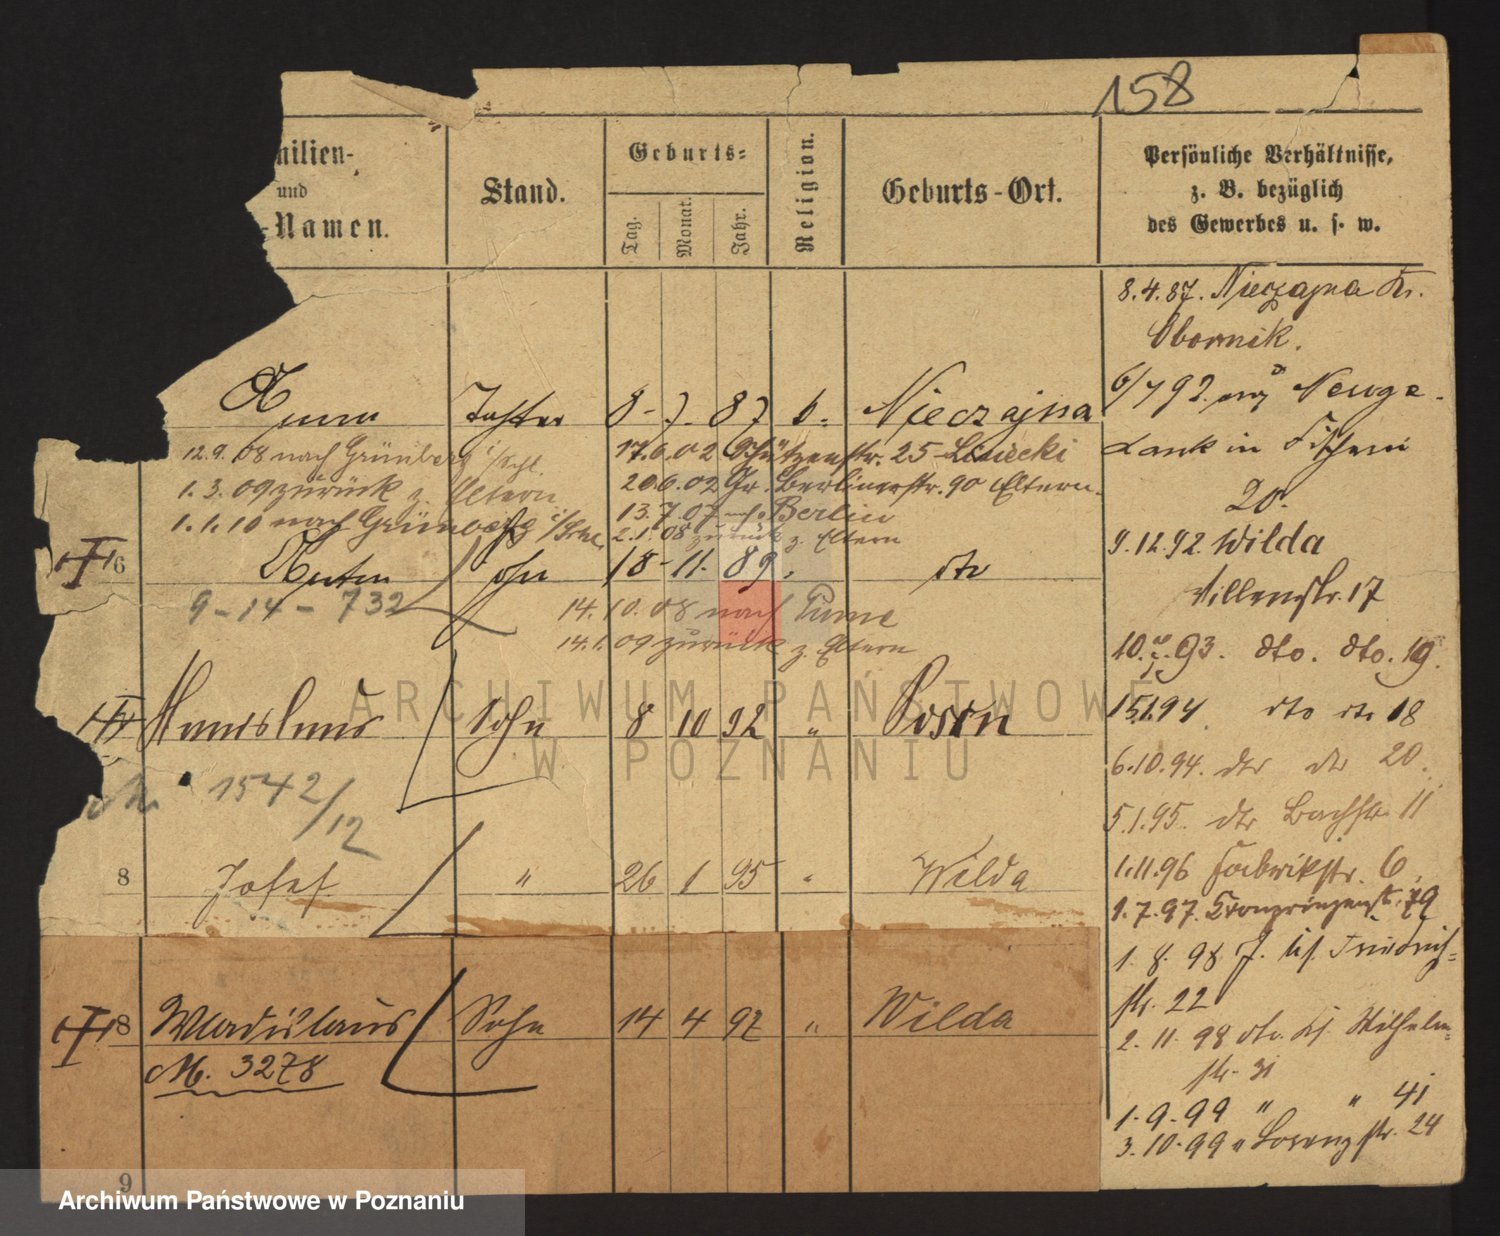 158
milien-
und
-Namen.
Stand.
Geburts-
Tag.
Monat.
Jahr.
Religion.
Geburts-Ort.
Persönliche Verhältnisse,
z. B. bezüglich
des Gewerbes u. s. w.
8.4.87. Nieczajna Kr.
Obornik.
Anna Tochter 8 - 7. 87 k. Nieczajna
6/7 92. Neuge.
12.9.08 nach Grünberg i/Schl.
17.6.02 Schützenstr. 25
Dank in Fischerei
1.3.09 zurück z. Eltern
20.6.02 Gr. Berlinerstr. 90 Eltern.
20.
1.1.10 nach Grünberg i/Schl.
13.7.07 nach Berlin
2.1.08 zurück z. Eltern
9.12.92. Wilda
6 Anton Sohn 18 - 11. 89 " dto
Villenstr. 17
9 - 14 - 732
14.10.08 nach
14.1.09 zurück z. Eltern
10. 93. dto. dto. 19.
Sohn 8 10 92 " Posen
15.1.94 dto dto 18
6.10.94. dto dto 20.
1542/12
5.1.95. dto Bachstr. 11
8 Josef " 26 1 95 " Wilda
1.11.96 Fabrikstr. 6.
1.7.97. Kronprinzenstr. 79
1. 8. 98 J. Friedrich-
str. 22
8 Wladislaus Sohn 14 4 97 " Wilda
2. 11. 98 dto. Wilhelm-
str. 31
M. 3278
1. 9. 99 " " 41
3. 10. 99 " Lorenzstr. 24
9
ARCHIWUM PAŃSTWOWE
W POZNANIU
Archiwum Państwowe w Poznaniu